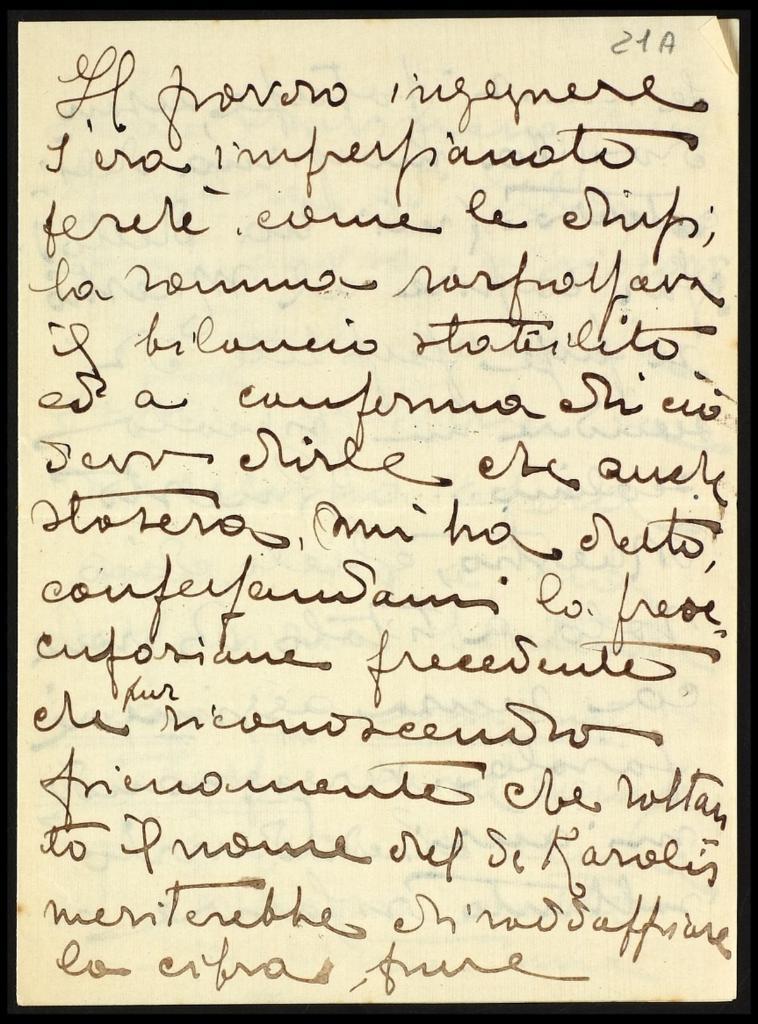 21A
Il povero ingegnere
s'era impressionato
perchè, come le dissi,
la somma sorpassava
il bilancio stabilito
ed a conferma di ciò
devo dirle che anche
stasera, mi ha detto,
confessandomi la preoc-
cupazione precedente
che pur riconoscendo
pienamente che soltan
to il nome del de Karolis
meriterebbe di raddoppiare
la cifra, pure